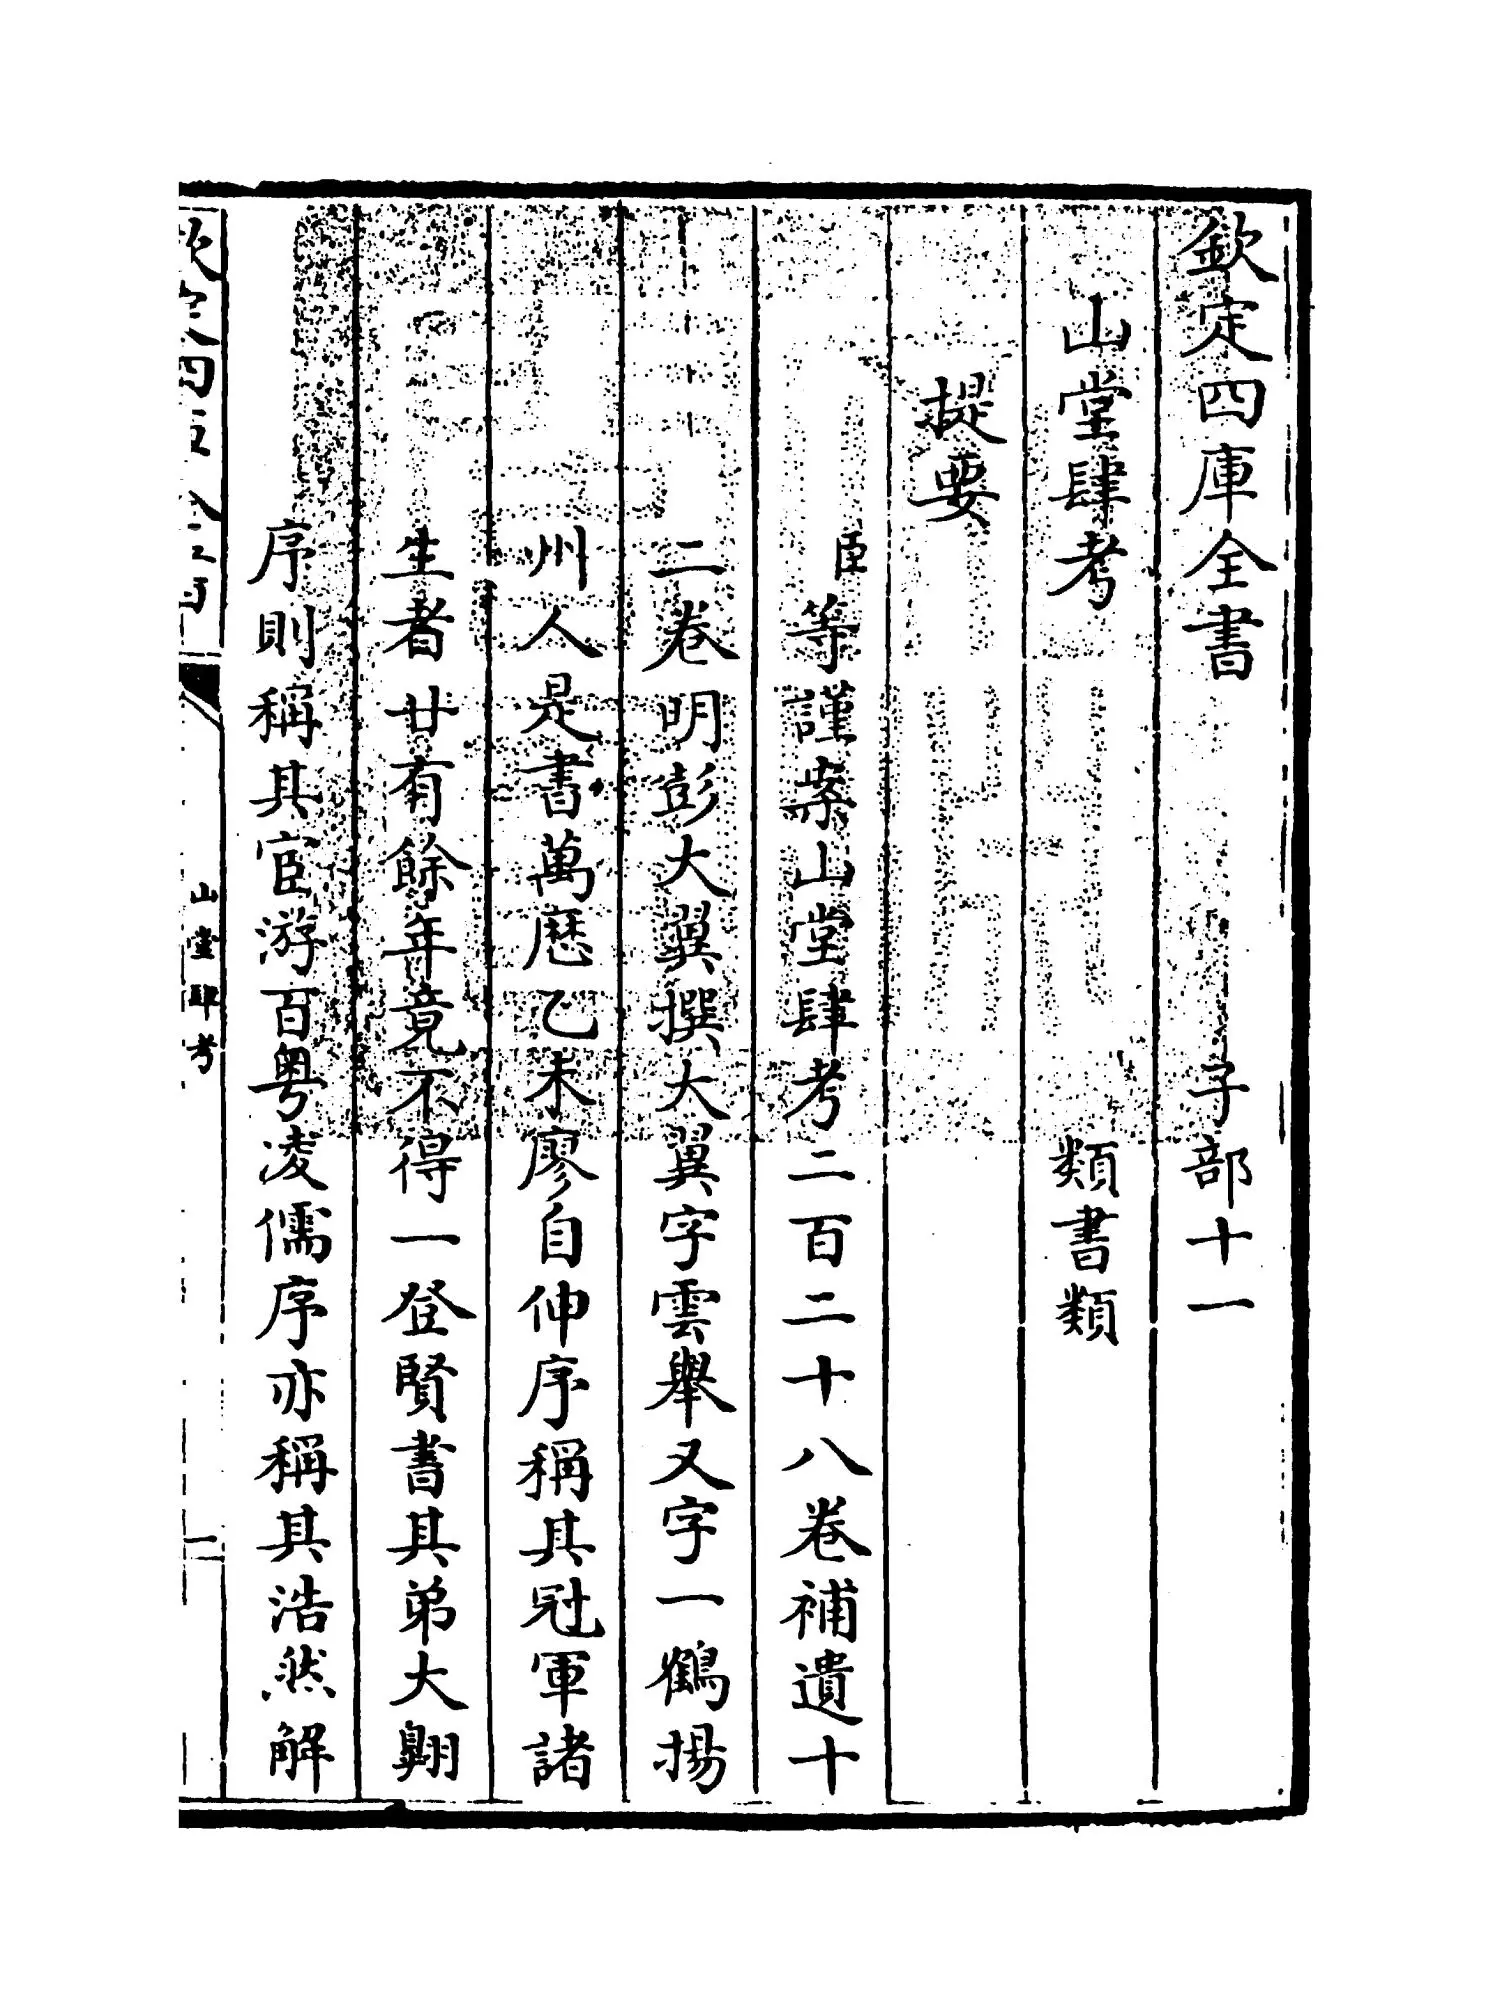 欽定四庫全書 子部十一
山堂肆考 類書類
提要
臣等謹案山堂肆考二百二十八卷補遺十
二卷明彭大翼撰大翼字雲舉又字一鶴揚
州人是書萬厯乙未廖自伸序稱其冠軍諸
生者廿有餘年竟不得一登賢書其弟大翺
序則稱其宦游百粤凌儒序亦稱其浩然解
欽定四庫全書
山堂肆考
一